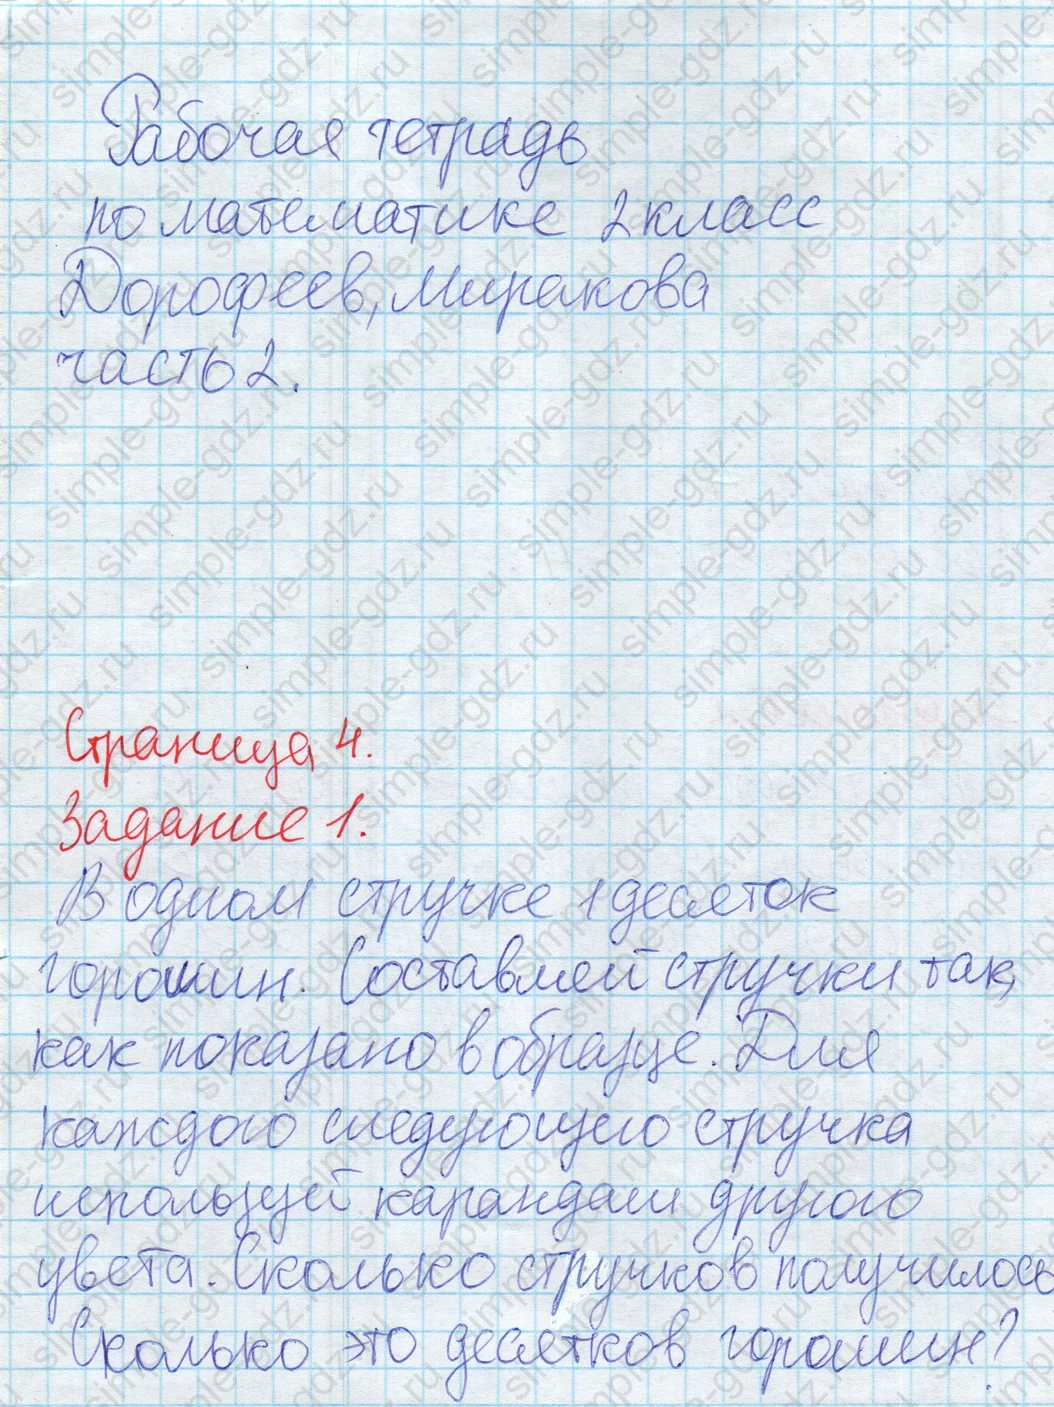 Рабочая тетрадь
по математике 2 класс
Дорофеев, Миракова
часть 2.
Страница 4.
Задание 1.
В одном стручке 1 десяток
горошин. Составляей стручки так,
как показано в образце. Для
каждого следующего стручка
используй карандаш другого
цвета. Сколько стручков получилось
Сколько это десятков горошин?
simple-gdz.ru